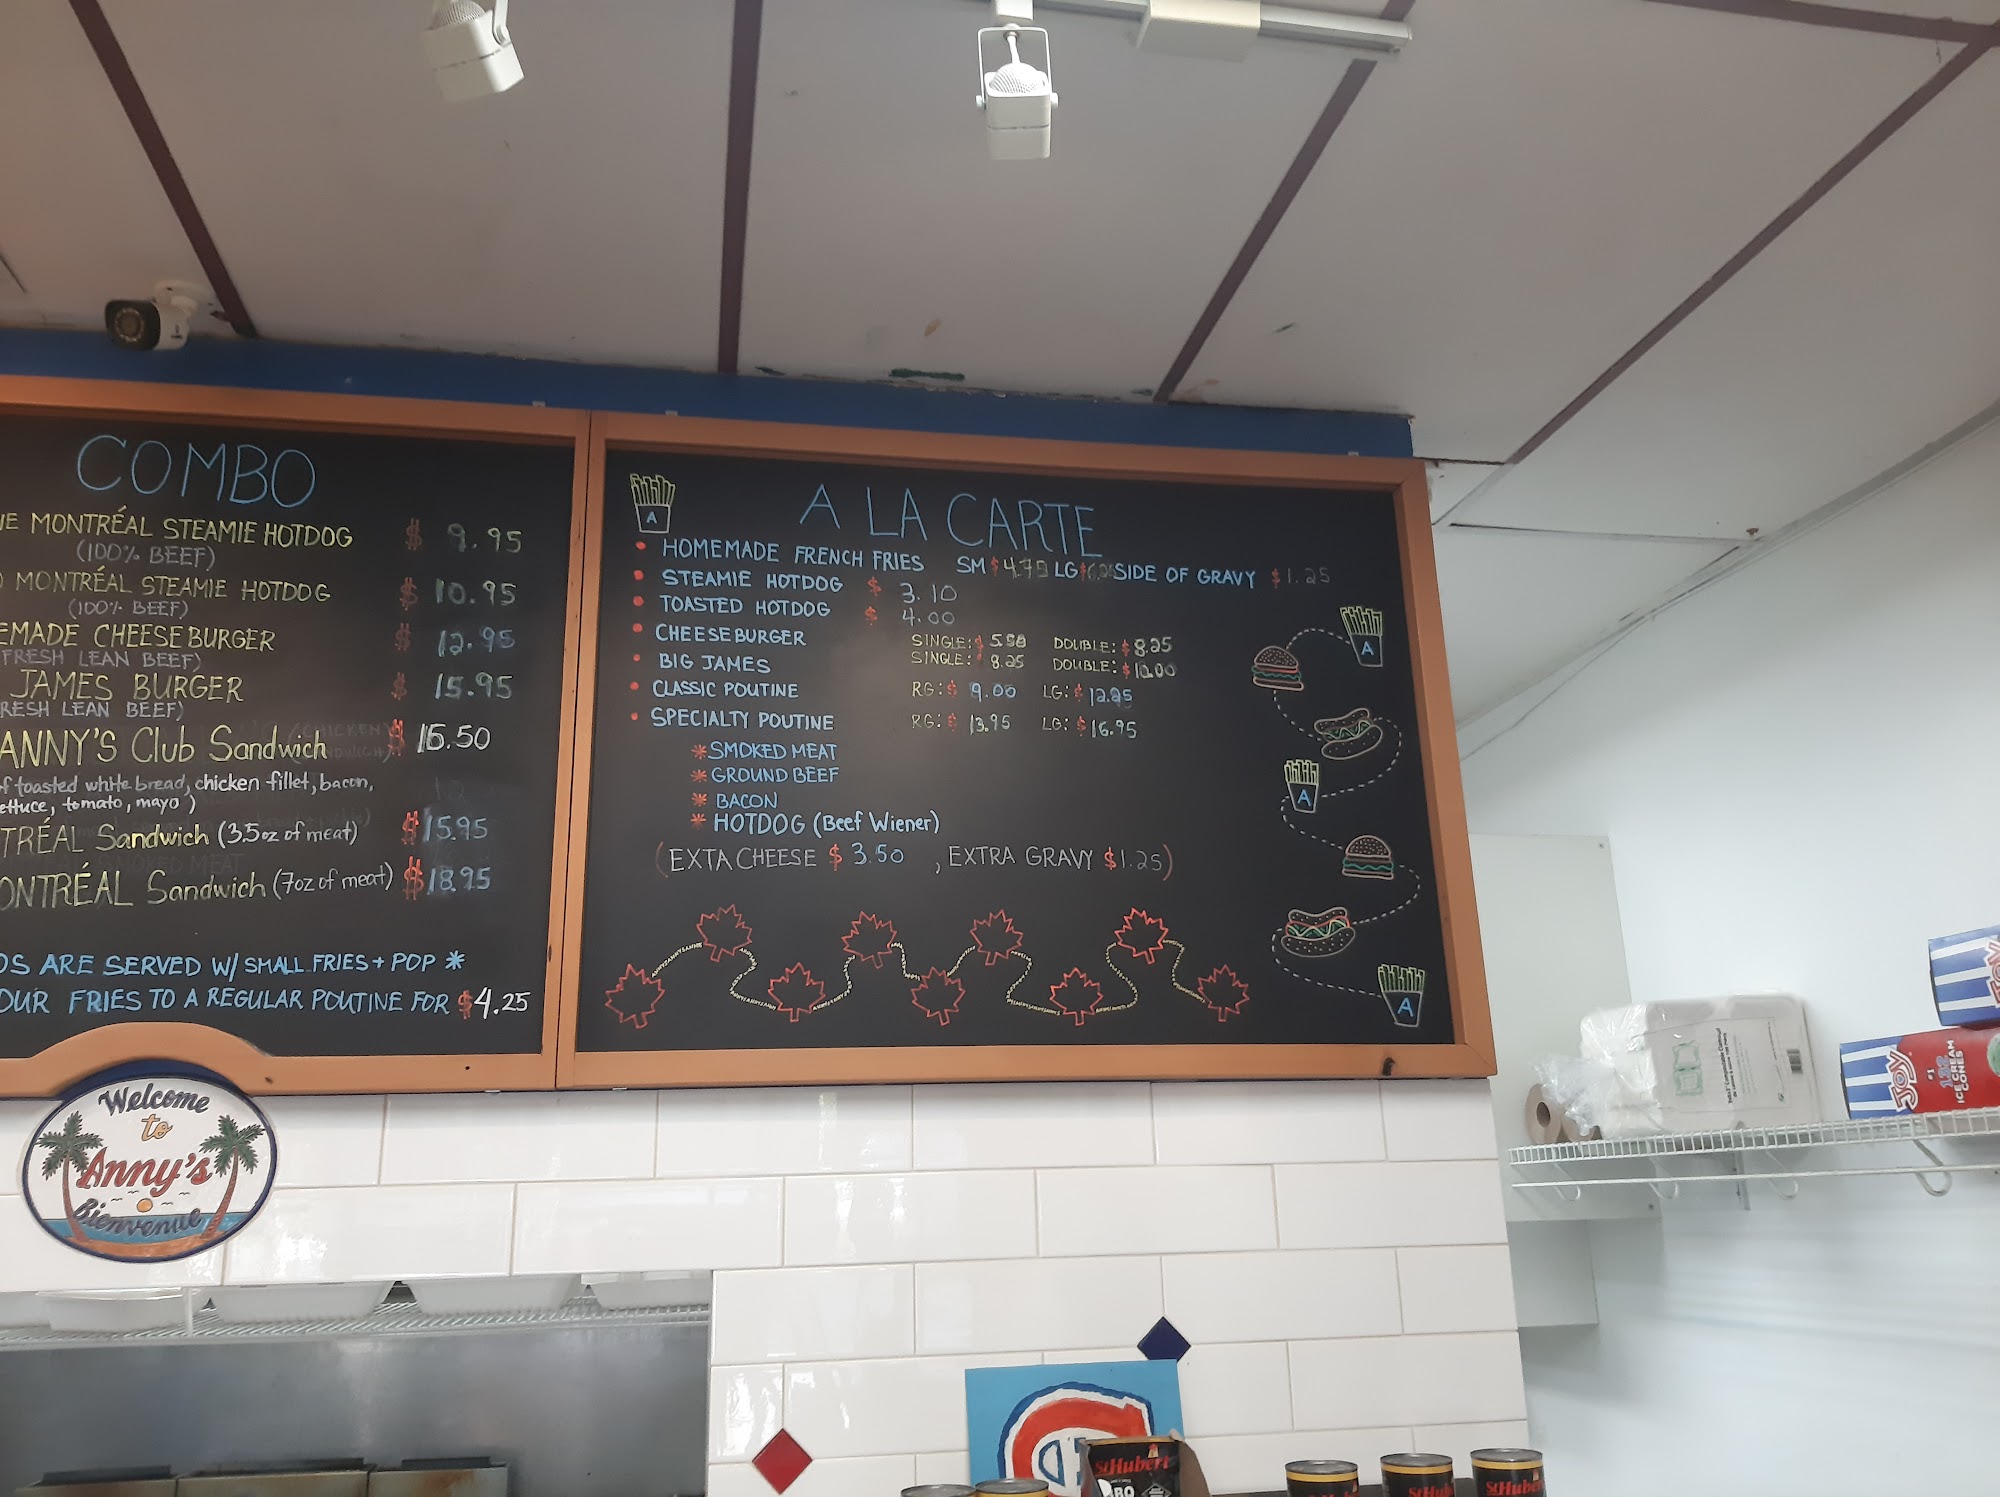 COMBO
MONTRÉAL STEAMIE HOTDOG $ 9.95
(100% BEEF)
MONTRÉAL STEAMIE HOTDOG $ 10.95
(100% BEEF)
EMADE CHEESEBURGER $ 12.95
FRESH LEAN BEEF)
JAMES BURGER $ 15.95
RESH LEAN BEEF)
ANNY'S Club Sandwich $ 15.50
f toasted white bread, chicken fillet, bacon,
ettuce, tomato, mayo)
TRÉAL Sandwich (3.5oz of meat) $15.95
ONTRÉAL Sandwich (7oz of meat) $18.95
OS ARE SERVED W/ SMALL FRIES + POP *
OUR FRIES TO A REGULAR POUTINE FOR $4.25
A LA CARTE
A
• HOMEMADE FRENCH FRIES SM $4.75 LG SIDE OF GRAVY $1.25
• STEAMIE HOTDOG $ 3.10
• TOASTED HOTDOG $ 4.00
• CHEESEBURGER SINGLE: $ 5.50 DOUBLE: $8.25
• BIG JAMES SINGLE: $ 8.25 DOUBLE:
• CLASSIC POUTINE RG: $ 9.00 LG: $ 12.25
• SPECIALTY POUTINE RG: $ 13.95 LG: $16.95
* SMOKED MEAT
* GROUND BEEF
* BACON
* HOTDOG (Beef Wiener)
(EXTA CHEESE $ 3.50 , EXTRA GRAVY $1.25)
A
A
A
Welcome
to
Anny's
Bienvenue
JOY
#1
ICE CREAM
CONES
St Hubert
BBQ
St Hub
St Hube